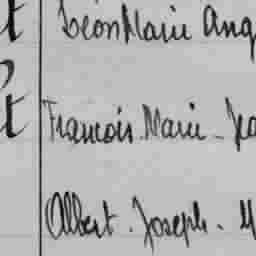 t Léon Marie Ang
t François Marie - Jea
Albert - Joseph - M